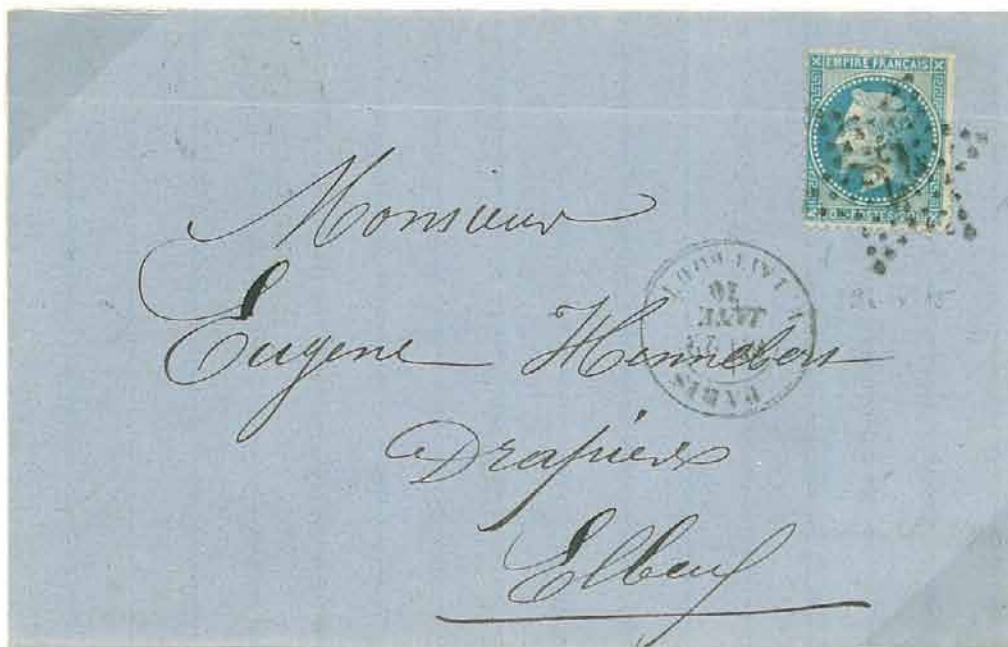 EMPIRE FRANÇAIS
Monsieur
Eugene Hennebert
Drapiers
Elbeuf
PARIS
JANV.